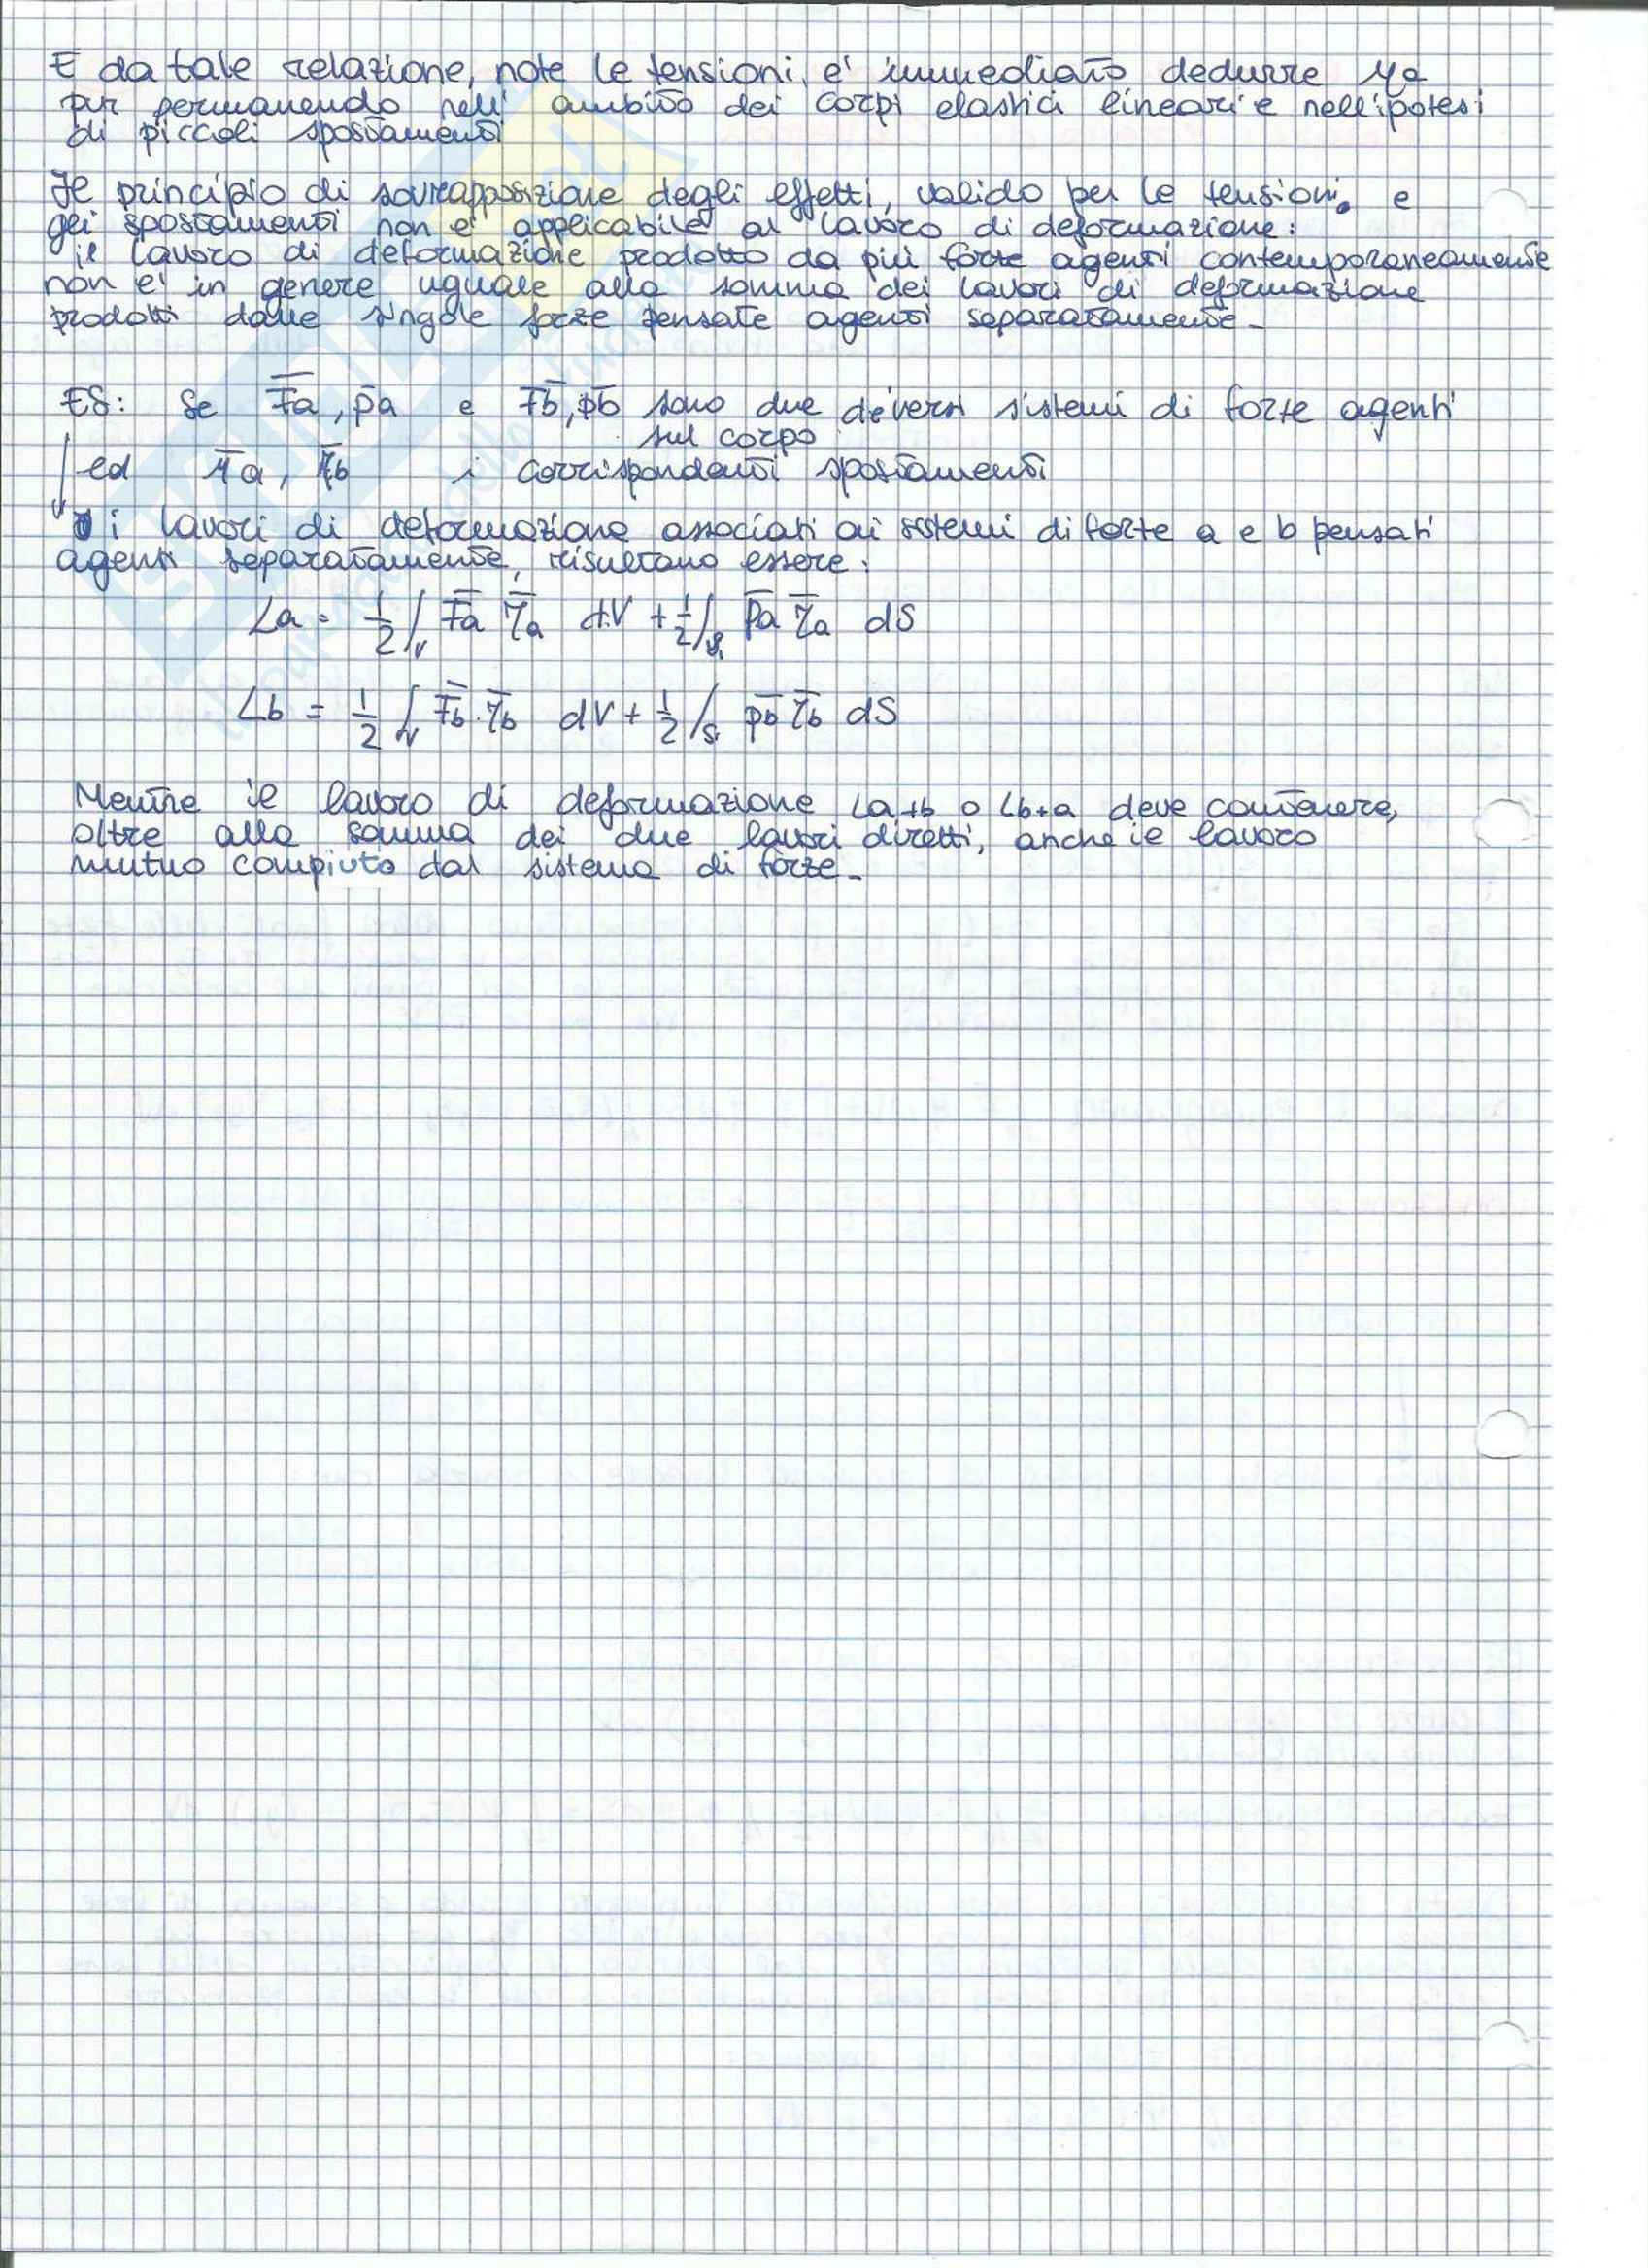 E da tale relazione, note le tensioni, e' immediato dedurre ηa
pur permanendo nell' ambito dei corpi elastici lineari e nell'ipotesi
di piccoli spostamenti
Il principio di sovrapposizione degli effetti, valido per le tensioni, e
gli spostamenti non e' applicabile al lavoro di deformazione:
il lavoro di deformazione prodotto da più forze agenti contemporaneamente
non e' in genere uguale alla somma dei lavori di deformazione
prodotti dalle singole forze pensate agenti separatamente_
ES: Se F̄a, p̄a e F̄b, p̄b sono due diversi sistemi di forze agenti
sul corpo
ed η̄a, η̄b i corrispondenti spostamenti
i lavori di deformazione associati ai sistemi di forze a e b pensati
agenti separatamente, risultano essere:
La = 1/2 ∫v F̄a η̄a dV + 1/2 ∫s p̄a η̄a dS
Lb = 1/2 ∫v F̄b · η̄b dV + 1/2 ∫s p̄b η̄b dS
Mentre il lavoro di deformazione La+b o Lb+a deve contenere,
oltre alla somma dei due lavori diretti, anche il lavoro
mutuo compiuto dal sistema di forze_